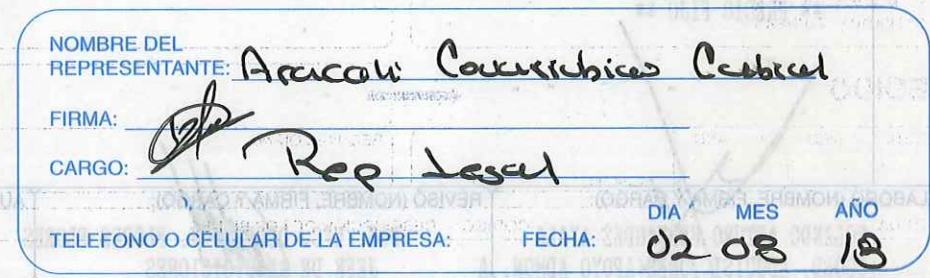 NOMBRE DEL
REPRESENTANTE: Araceli Covarrubias Cabral
FIRMA:
CARGO: Rep Legal
DIA MES AÑO
TELEFONO O CELULAR DE LA EMPRESA: FECHA: 02 08 18